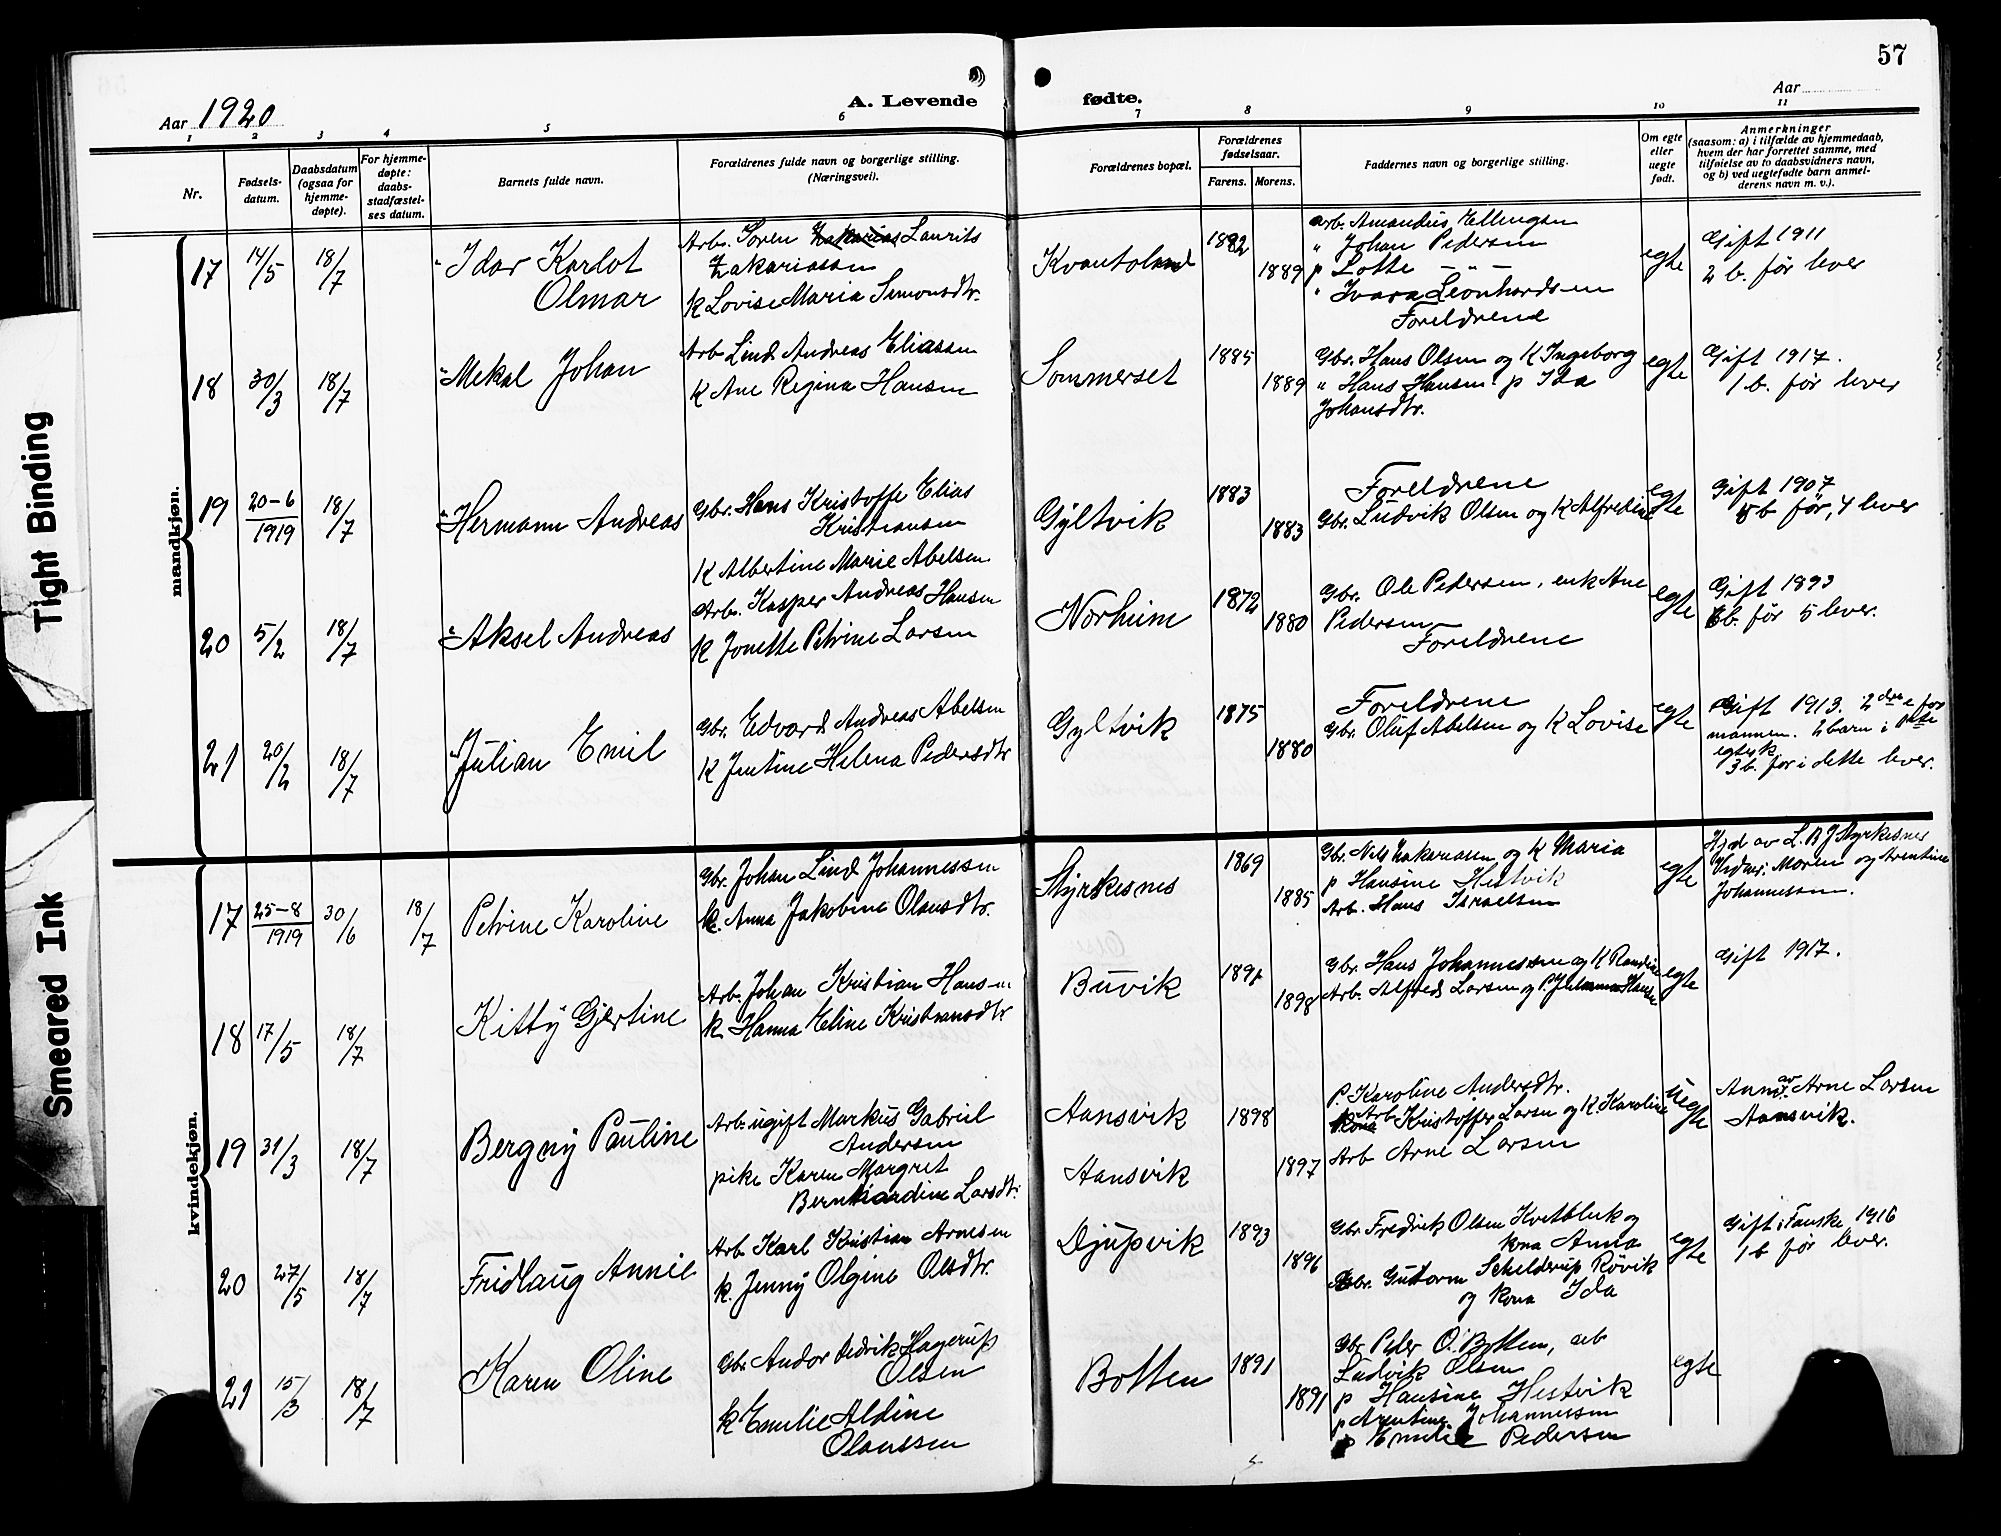 57
Aar 1920
A. Levende fødte.
Aar
1 2 3 4 5 6 7 8 9 10 11
Nr.
Fødsels-
datum.
Daabsdatum
(ogsaa for
hjemme-
døpte).
For hjemme-
døpte:
daabs-
stadfæstel-
ses datum.
Barnets fulde navn.
Forældrenes fulde navn og borgerlige stilling.
(Næringsvei).
Forældrenes bopæl.
Forældrenes
fødselsaar.
Farens. Morens.
Faddernes navn og borgerlige stilling.
Om egte
eller
uegte
født.
Anmerkninger
(saasom: a) i tilfælde av hjemmedaab,
hvem der har forrettet samme, med
tilføielse av to daabsvidners navn,
og b) ved uegtefødte barn anmel-
derens navn m. v.).
mandkjøn.
17 14/5 18/7
Idar Karlot
Olmar
Arb. Soren Zakarias Laurits
Zakariassen
K Lovise Maria Simonsdtr.
Kvantoland
1882
1889
Arb. Amandus Ellingsen
" Johan Pedersen
p Lotte "
" Ivara Leonhardsen
Foreldrene
egte
Gift 1911
2 b. før lever
18 30/3 18/7
Mekal Johan
Arb Lind Andreas Eliassen
K Ane Regina Hansen
Sommerset
1885
1889
Gbr. Hans Olsen og K Ingeborg
" Hans Hansen p Ida
Johansdtr.
egte
Gift 1917.
1 b. før lever
19 20-6/1919 18/7
Hermann Andreas
Gbr. Hans Kristoffe Elias
Kristiansen
K Albertine Marie Abelsen
Gyltvik
1883
1883
Foreldrene
Gbr. Ludvik Olsen og K Alfredine
egte
Gift 1907
5 b før, 4 lever
20 5/2 18/7
Aksel Andreas
Arb. Kasper Andreas Hansen
K Jonette Petrine Larsen
Norheim
1872
1880
Gbr. Ole Pedersen, enk Ane
Pedersen
Foreldrene
egte
Gift 1893
6 b. før 5 lever.
21 20/2 18/7
Julian Emil
Gbr. Edvard Andreas Abelsen
K Jentine Helena Pedersdtr
Gyltvik
1875
1880
Foreldrene
Gbr. Oluf Abelsen og K Lovise
egte
Gift 1913. 2den e for
mannen. 2 barn i 1ste
egtesk.
3 b. før i dette lever.
kvindekjøn.
17 25-8/1919 30/6 18/7
Petrine Karoline
Gbr. Johan Lind Johannessen
k. Anna Jakobine Olausdtr.
Styrkesnes
1869
1885
Gbr. Nels Zakariasen og K Maria
p Hansine Hestvik
Arb. Hans Israelsen
egte
Hjd av L. B J Styrkesnes
Vidner: Moren og Arentine
Johannessen.
18 17/5 18/7
Kitty Gjertine
Arb. Johan Kristian Hansen
k Hanna Eline Kristiansdtr
Buvik
1891
1898
Gbr. Hans Johannessen og K Randine
Arb. Alfred Larsen og P. Julianna Hansen
egte
Gift 1917.
19 31/3 18/7
Bergny Pauline
Arb. ugift Markus Gabriel
Andersen
pike Karen Margret
Bernhardine Larsdtr.
Aansvik
Aansvik
1898
1897
P. Karoline Andersdtr.
Arb Kristoffer Larsen og K. Karoline
Arb Arne Larsen
uegte
Anm. av Arne Larsen
Aansvik.
20 27/5 18/7
Fridlaug Annie
Arb Karl Kristian Arnesen
k. Jenny Olgine Olsdtr.
Djupvik
1893
1896
Gbr Fredrik Olsen Kvitblik og
kona Anna
Gbr. Guttorm Schelderup Røvik
og kona Ida
egte
Gift i Fauske 1916
1 b før lever.
21 15/3 18/7
Karen Oline
Gbr Andor Didrik Hagerup
Olsen
k Emelie Aldine
Olaussen
Botten
1891
1891
Gbr Peder O. Botten, arb
Ludvik Olsen
p Hansine Hestvik
p Arentine Johannesen
p Emelie Pedersen
egte
Tight Binding
Smeared Ink